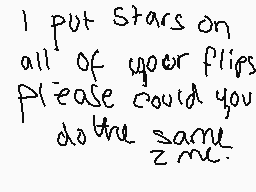 I put stars on
all of your flips
Please could you
do the same
2 me.